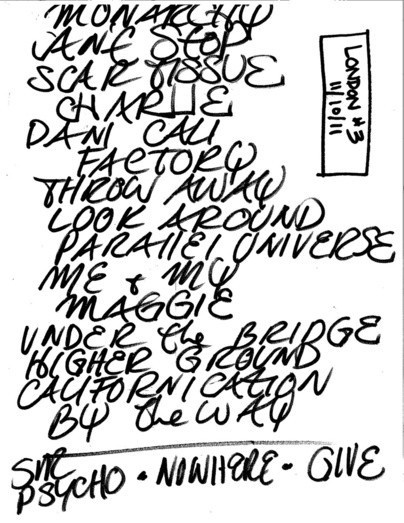 MONARCHY
JANE STOP
SCAR TISSUE
CHARLIE
DANI CALI
FACTORY
THROW AWAY
LOOK AROUND
PARALLEL UNIVERSE
ME & MY
MAGGIE
UNDER the BRIDGE
HIGHER GROUND
CALIFORNICATION
BY the WAY
SIR
PSYCHO • NOWHERE • GIVE
LONDON #3
11/10/11